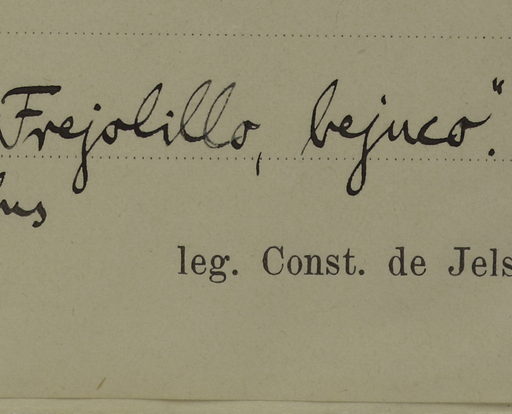 Frejolillo, bejuco".
leg. Const. de Jels